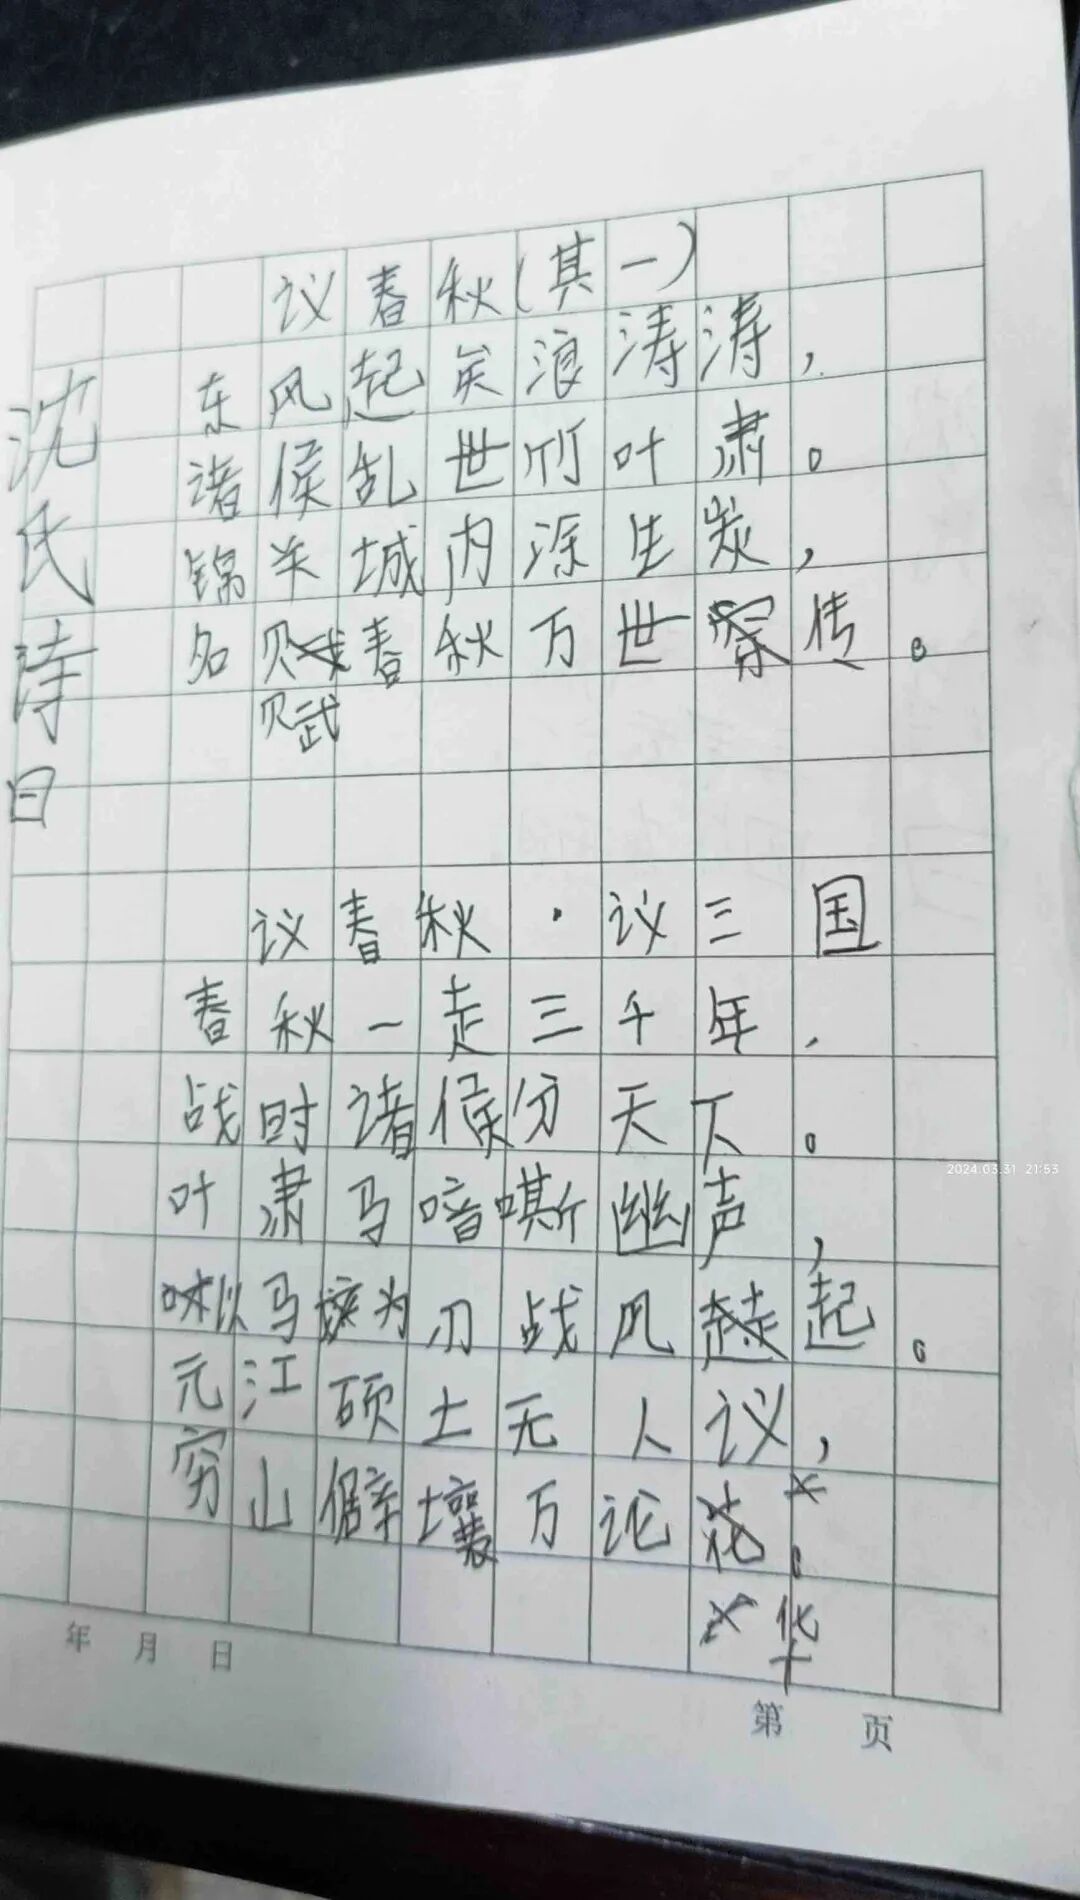 议春秋(其一)
东风起矣浪涛涛，
诸侯乱世竹叶肃。
锦羊城内涂生炭，
名贱春秋万世 传。
赋
沈氏诗曰
议春秋·议三国
春秋一走三千年，
战时诸侯分天下。
叶肃马喑嘶幽声，
以马 为刀战风起。
元江硕土无人议，
穷山僻壤万论花。
华
年 月 日
第 页
2024.03.31 21:53